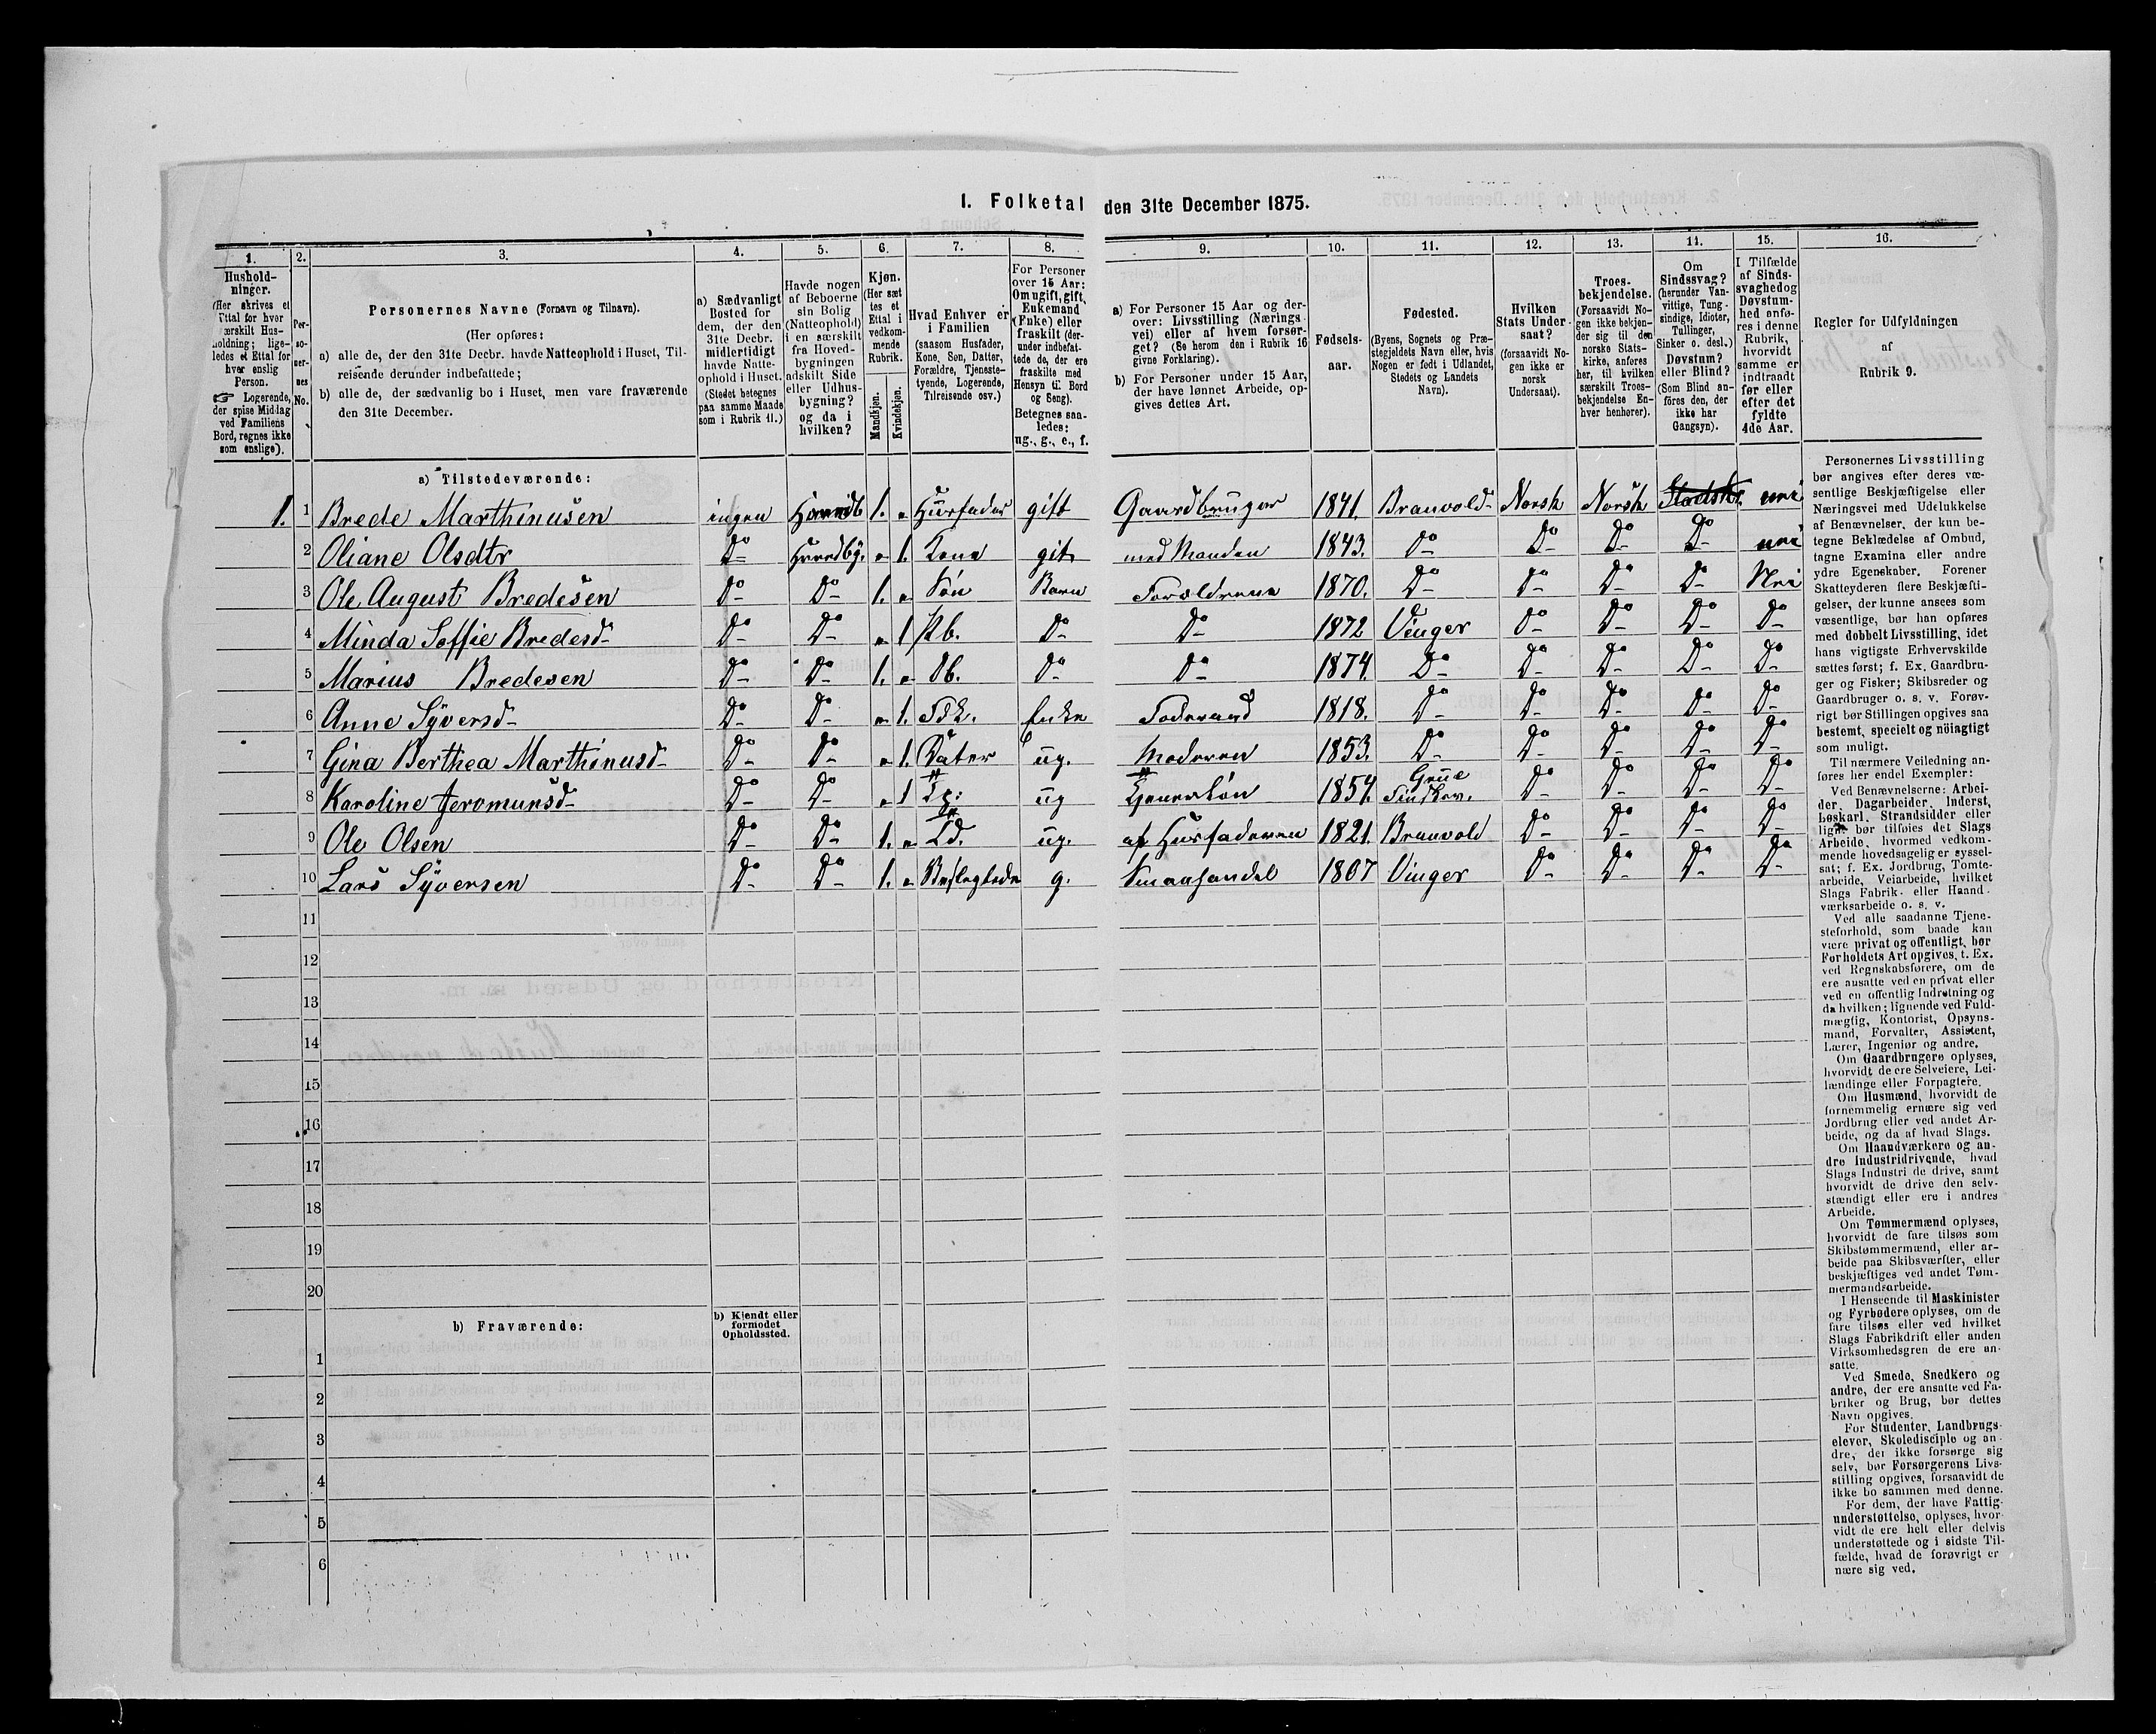 I. Folketal den 31te December 1875.
1. 2. 3. 4. 5. 6. 7. 8. 9. 10. 11. 12. 13. 14. 15. 16.
Hushold-
ninger.
(Her skrives et
Ettal for hver
særskilt Hus-
holdning; lige-
ledes et Ettal for
hver enslig
Person.
☞ Logerende,
der spise Middag
ved Familiens
Bord, regnes ikke
som enslige).
Per-
so-
ner-
nes
No.
Personernes Navne (Fornavn og Tilnavn).
(Her opføres:
a) alle de, der den 31te Decbr. havde Natteophold i Huset, Til-
reisende derunder indbefattede;
b) alle de, der sædvanlig bo i Huset, men vare fraværende
den 31te December.
a) Sædvanligt
Bosted for
dem, der den
31te Decbr.
midlertidigt
havde Natte-
ophold i Huset.
(Stedet betegnes
paa samme Maade
som i Rubrik 11.)
Havde nogen
af Beboerne
sin Bolig
(Natteophold)
i en særskilt
fra Hoved-
bygningen
adskilt Side
eller Udhus-
bygning?
og da i
hvilken?
Kjøn.
(Her sæt
tes et
Ettal i
vedkom-
mende
Rubrik.
Mandkjøn.
Kvindekjøn.
Hvad Enhver er
i Familien
(saasom Husfader,
Kone, Søn, Datter,
Forældre, Tjeneste-
tyende, Logerende,
Tilreisende osv.)
For Personer
over 15 Aar:
Om ugift, gift,
Enkemand
(Enke) eller
fraskilt (der-
under indbefat-
tede de, der ere
fraskilte med
Hensyn til Bord
og Seng).
Betegnes saa-
ledes:
ug., g., e., f.
a) For Personer 15 Aar og der-
over: Livsstilling (Nærings-
vei) eller af hvem forsør-
get? (Se herom den i Rubrik 16
givne Forklaring).
b) For Personer under 15 Aar,
der have lønnet Arbeide, op-
gives dettes Art.
Fødsels-
aar.
Fødested.
(Byens, Sognets og Præ-
stegjeldets Navn eller, hvis
Nogen er født i Udlandet,
Stedets og Landets
Navn).
Hvilken
Stats Under-
saat?
(forsaavidt No-
gen ikke er
norsk
Undersaat).
Troes-
bekjendelse.
(Forsaavidt No-
gen ikke bekjen-
der sig til den
norske Stats-
kirke, anføres
her, til hvilken
særskilt Troes-
bekjendelse En-
hver henhører).
Om
Sindssvag?
(herunder Van-
vittige, Tung-
sindige, Idioter,
Tullinger,
Sinker o. desl.)
Døvstum?
eller Blind?
(Som Blind an-
føres den, der
ikke har
Gangsyn).
I Tilfælde
af Sinds-
svaghed og
Døvstum-
hed anfø-
res i denne
Rubrik,
hvorvidt
samme er
indtraadt
før eller
efter det
fyldte
4de Aar.
Regler for Udfyldningen
af
Rubrik 9.
a) Tilstedeværende:
1. 1 Brede Marthinusen ingen 1. Husfader gift Gaardbruger 1841. Branvold Norsk Norsk
2 Oliane Olsdtr Do 1. Kone gift med Manden 1843. Do Do Do Do
3 Ole August Bredesen Do Do 1. Søn Barn Forældrene 1870. Do Do Do Do Nei
4 Minda Soffie Bredesd Do Do 1 Do Do 1872 Vinger Do Do Do Do
5 Marius Bredesen Do Do 1. Do Do 1874. Do Do Do Do Do
6 Anne Syversd Do Do 1. Enke Foderaad 1818. Do Do Do Do Do
7 Gina Berthea Marthinusd Do Do 1. Dater ug. Moderen 1853. Do Do Do Do Do
8 Karoline Do Do 1 ug 1854. Grue Do Do Do Do
9 Ole Olsen Do Do 1. ug. af Husfaderen 1821. Branvold Do Do Do Do
10 Lars Syversen Do Do 1. Beslegtede g. Smaahandel 1807 Vinger Do Do Do Do
11
12
13
14
15
16
17
18
19
20
b) Fraværende:
b) Kjendt eller
formodet
Opholdssted.
1
2
3
4
5
6
Personernes Livsstilling
bør angives efter deres væ-
sentlige Beskjæftigelse eller
Næringsvei med Udelukkelse
af Benævnelser, der kun be-
tegne Beklædelse af Ombud,
tagne Examina eller andre
ydre Egenskaber. Forener
Skatteyderen flere Beskjæfti-
gelser, der kunne ansees som
væsentlige, bør han opføres
med dobbelt Livsstilling, idet
hans vigtigste Erhvervskilde
sættes først; f. Ex. Gaardbru-
ger og Fisker; Skibsreder og
Gaardbruger o. s. v. Forøv-
rigt bør Stillingen opgives saa
bestemt, specielt og nöiagtigt
som muligt.
Til nærmere Veiledning an-
føres her endel Exempler:
Ved Benævnelserne: Arbei-
der, Dagarbeider, Inderst,
Løskarl, Strandsidder eller
lign. bør tilføies det Slags
Arbeide, hvormed vedkom-
mende hovedsagelig er syssel-
sat; f. Ex. Jordbrug, Tomte-
arbeide, Veiarbeide, hvilket
Slags Fabrik- eller Haand-
værksarbeide o. s. v.
Ved alle saadanne Tjene-
steforhold, som baade kan
være privat og offentligt, bør
Forholdets Art opgives, t. Ex.
ved Regnskabsførere, om de
ere ansatte ved en privat eller
ved en offentlig Indretning og
da hvilken; lignende ved Fuld-
mægtig, Kontorist, Opsyns-
mand, Forvalter, Assistent,
Lærer, Ingeniør og andre.
Om Gaardbrugere oplyses,
hvorvidt de ere Selveiere, Lei-
lændinge eller Forpagtere.
Om Husmænd, hvorvidt de
fornemmelig ernære sig ved
Jordbrug eller ved andet Ar-
beide, og da af hvad Slags.
Om Haandværkere og an-
dre Industridrivende, hvad
Slags Industri de drive, samt
hvorvidt de drive den selv-
stændigt eller ere i andres
Arbeide.
Om Tømmermænd oplyses,
hvorvidt de fare tilsøs som
Skibstømmermænd, eller ar-
beide paa Skibsværfter, eller
beskjæftiges ved andet Tøm-
mermandsarbeide.
I Henseende til Maskinister
og Fyrbødere oplyses, om de
fare tilsøs eller ved hvilket
Slags Fabrikdrift eller anden
Virksomhedsgren de ere an-
satte.
Ved Smede, Snedkere og
andre, der ere ansatte ved Fa-
briker og Brug, bør dettes
Navn opgives.
For Studenter, Landbrugs-
elever, Skoledisciple og an-
dre, der ikke forsørge sig
selv, bør Forsørgerens Livs-
stilling opgives, forsaavidt de
ikke bo sammen med denne.
For dem, der have Fattig-
understøttelse, oplyses, hvor-
vidt de ere helt eller delvis
understøttede og i sidste Til-
fælde, hvad de forøvrigt er
nære sig ved.